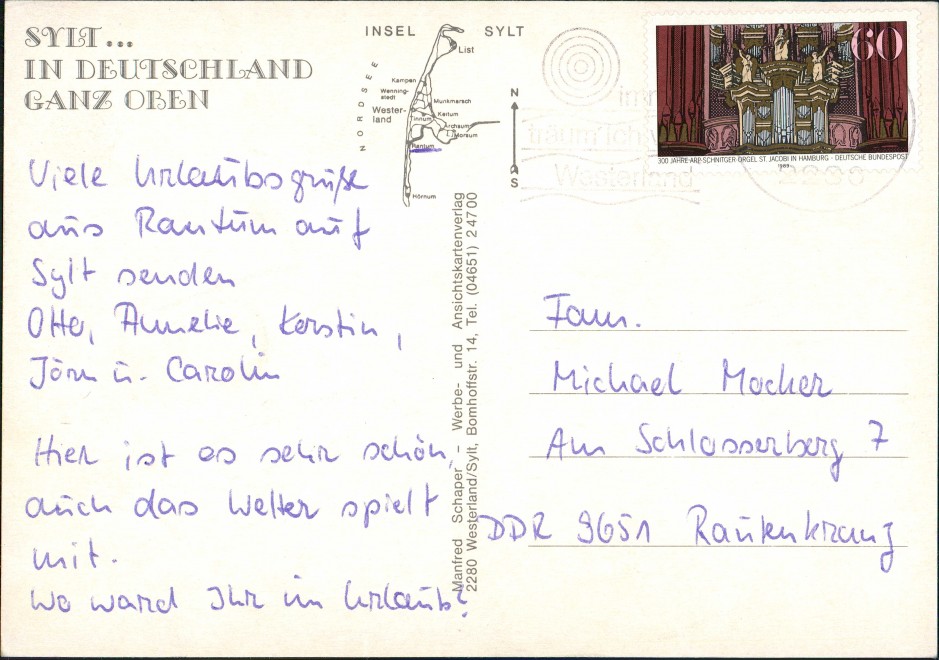 SYLT...
IN DEUTSCHLAND
GANZ OBEN
INSEL SYLT
List
Kampen
Wenning-
stedt
Munkmarsch
Wester-
land
Keitum
Tinnum
Archsum
Morsum
Rantum
Hörnum
NORDSEE
N
S
60
300 JAHRE ARP-SCHNITGER-ORGEL ST. JACOBI IN HAMBURG · DEUTSCHE BUNDESPOST
1989
träum ich
Westerland
Viele Urlaubsgrüße
aus Rantum auf
Sylt senden
Otto, Annelie, Kerstin,
Jörn u. Carolin
Hier ist es sehr schön,
auch das Wetter spielt
mit.
Wo ward Ihr im Urlaub?
Manfred Schaper – Werbe- und Ansichtskartenverlag
2280 Westerland/Sylt, Bomhoffstr. 14, Tel. (04651) 24700
Fam.
Michael Mocker
Am Schlosserberg 7
DDR 9651 Rautenkranz